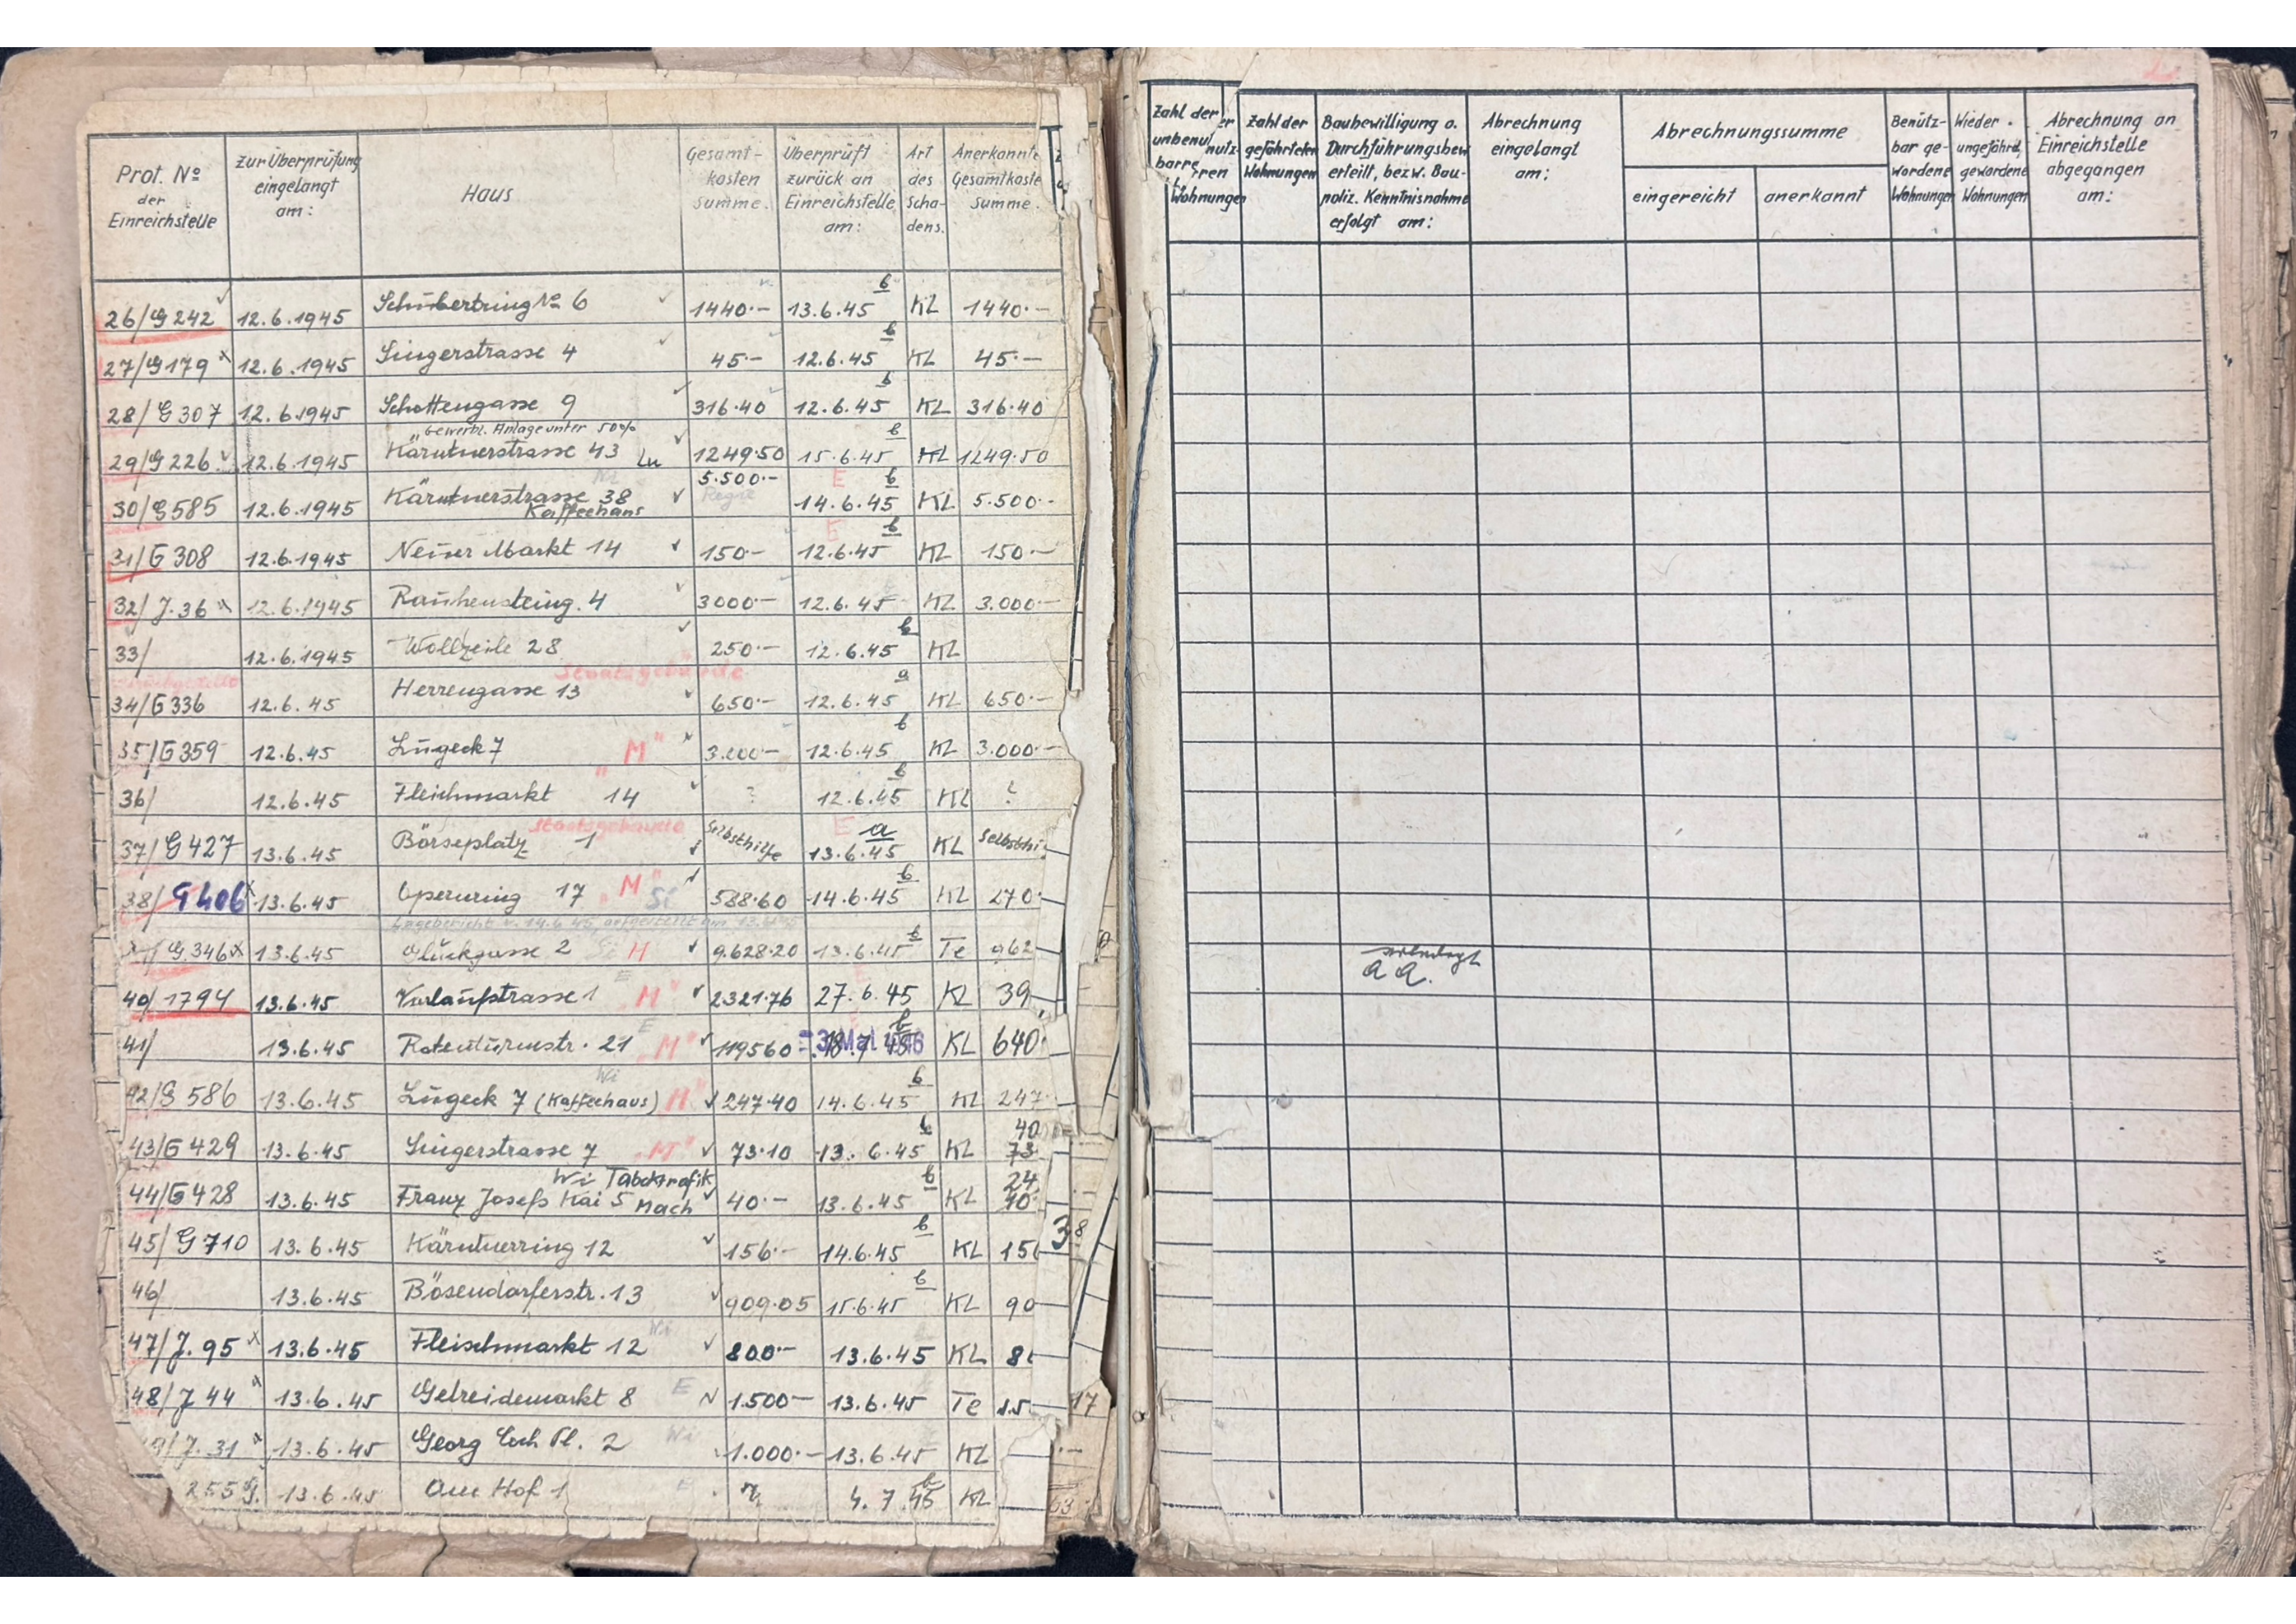 Prot. No der Einreichstelle | Zur Überprüfung eingelangt am: | Haus | Gesamt-kosten Summe. | Überprüft zurück an Einreichstelle am: | Art des Scha-dens. | Anerkannte Gesamtkoste Summe.
26/G 242 | 12.6.1945 | Schubertring No 6 | 1440.- | 13.6.45 b | KL | 1440.-
27/G 179 x | 12.6.1945 | Singerstrasse 4 | 45.- | 12.6.45 b | KL | 45.-
28/G 307 | 12.6.1945 | Schottengasse 9 | 316.40 | 12.6.45 b | KL | 316.40
"Gewerbl. Anlage unter 50%
29/G 226 | 12.6.1945 | Kärntnerstrasse 43 Lu | 1249.50 | 15.6.45 b | KL | 1249.50
30/G 585 | 12.6.1945 | Kärntnerstrasse 38 Kaffeehaus | 5.500.- Regie | E 14.6.45 b | KL | 5.500.-
31/G 308 | 12.6.1945 | Neuer Markt 14 | 150.- | E 12.6.45 b | KL | 150.-
32/J. 36 x | 12.6.1945 | Rauhensteing. 4 | 3000.- | 12.6.45 | KL | 3.000.-
33/ | 12.6.1945 | Wollzeile 28 | 250.- | 12.6.45 b | KL
Staatsgebäude
34/G 336 | 12.6.45 | Herrengasse 13 | 650.- | 12.6.45 a | KL | 650.-
35/G 359 | 12.6.45 | Lugeck 7 "M" | 3.000.- | 12.6.45 b | KL | 3.000.-
36/ | 12.6.45 | Fleischmarkt 14 | ? | 12.6.45 b | KL | ?
Staatsgebäude
37/G 427 | 13.6.45 | Börseplatz 1 | Selbsthilfe | E 13.6.45 a | KL | Selbsthi
38/G 406 x | 13.6.45 | Opernring 17 "M" Si | 588.60 | 14.6.45 b | KL | 270.
Lagebericht v. 14.6.45, aufgestellt am 13.6.45
G 346 x | 13.6.45 | Gluckgasse 2 M | 9.628.20 | 13.6.45 b | Te | 962
40/1794 | 13.6.45 | Vorlaufstrasse 1 "M" | 2321.76 | 27.6.45 | KL | 39
41/ | 13.6.45 | Rotenturmstr. 21 "M" | 119560 | -3. Mai 1946 18.7.45 b | KL | 640.
42/G 586 | 13.6.45 | Lugeck 7 (Kaffeehaus) Wi M" | 247.40 | 14.6.45 b | KL | 247.
43/G 429 | 13.6.45 | Singerstrasse 7 "M" | 73.10 | 13.6.45 b | KL | 40 73
44/G 428 | 13.6.45 | Franz Josefs Kai 5 Wi Tabaktrafik Mach | 40.- | 13.6.45 b | KL | 24 40
45/G 710 | 13.6.45 | Kärntnerring 12 | 156.- | 14.6.45 b | KL | 156
46/ | 13.6.45 | Bösendorferstr. 13 | 909.05 | 15.6.45 b | KL | 90
47/J. 95 x | 13.6.45 | Fleischmarkt 12 Wi | 800.- | 13.6.45 | KL | 8
48/J 44 x | 13.6.45 | Getreidemarkt 8 E | 1.500.- | 13.6.45 | Te | 1.5
49/J. 31 x | 13.6.45 | Georg Coch Pl. 2 Wi | 1.000.- | 13.6.45 | KL
255 G. | 13.6.45 | Am Hof 1 E | 4.7.45 b | KL
38
17
63
Zahl der unbenutz-barren Wohnungen | Zahl der gefährteten Wohnungen | Baubewilligung o. Durchführungsbew erteilt, bezw. Bau-poliz. Kenntnisnahme erfolgt am: | Abrechnung eingelangt am: | Abrechnungssumme | Benütz-bar ge-wordene Wohnungen | Wieder ungefährd, gewordene Wohnungen | Abrechnung an Einreichstelle abgegangen am:
eingereicht | anerkannt